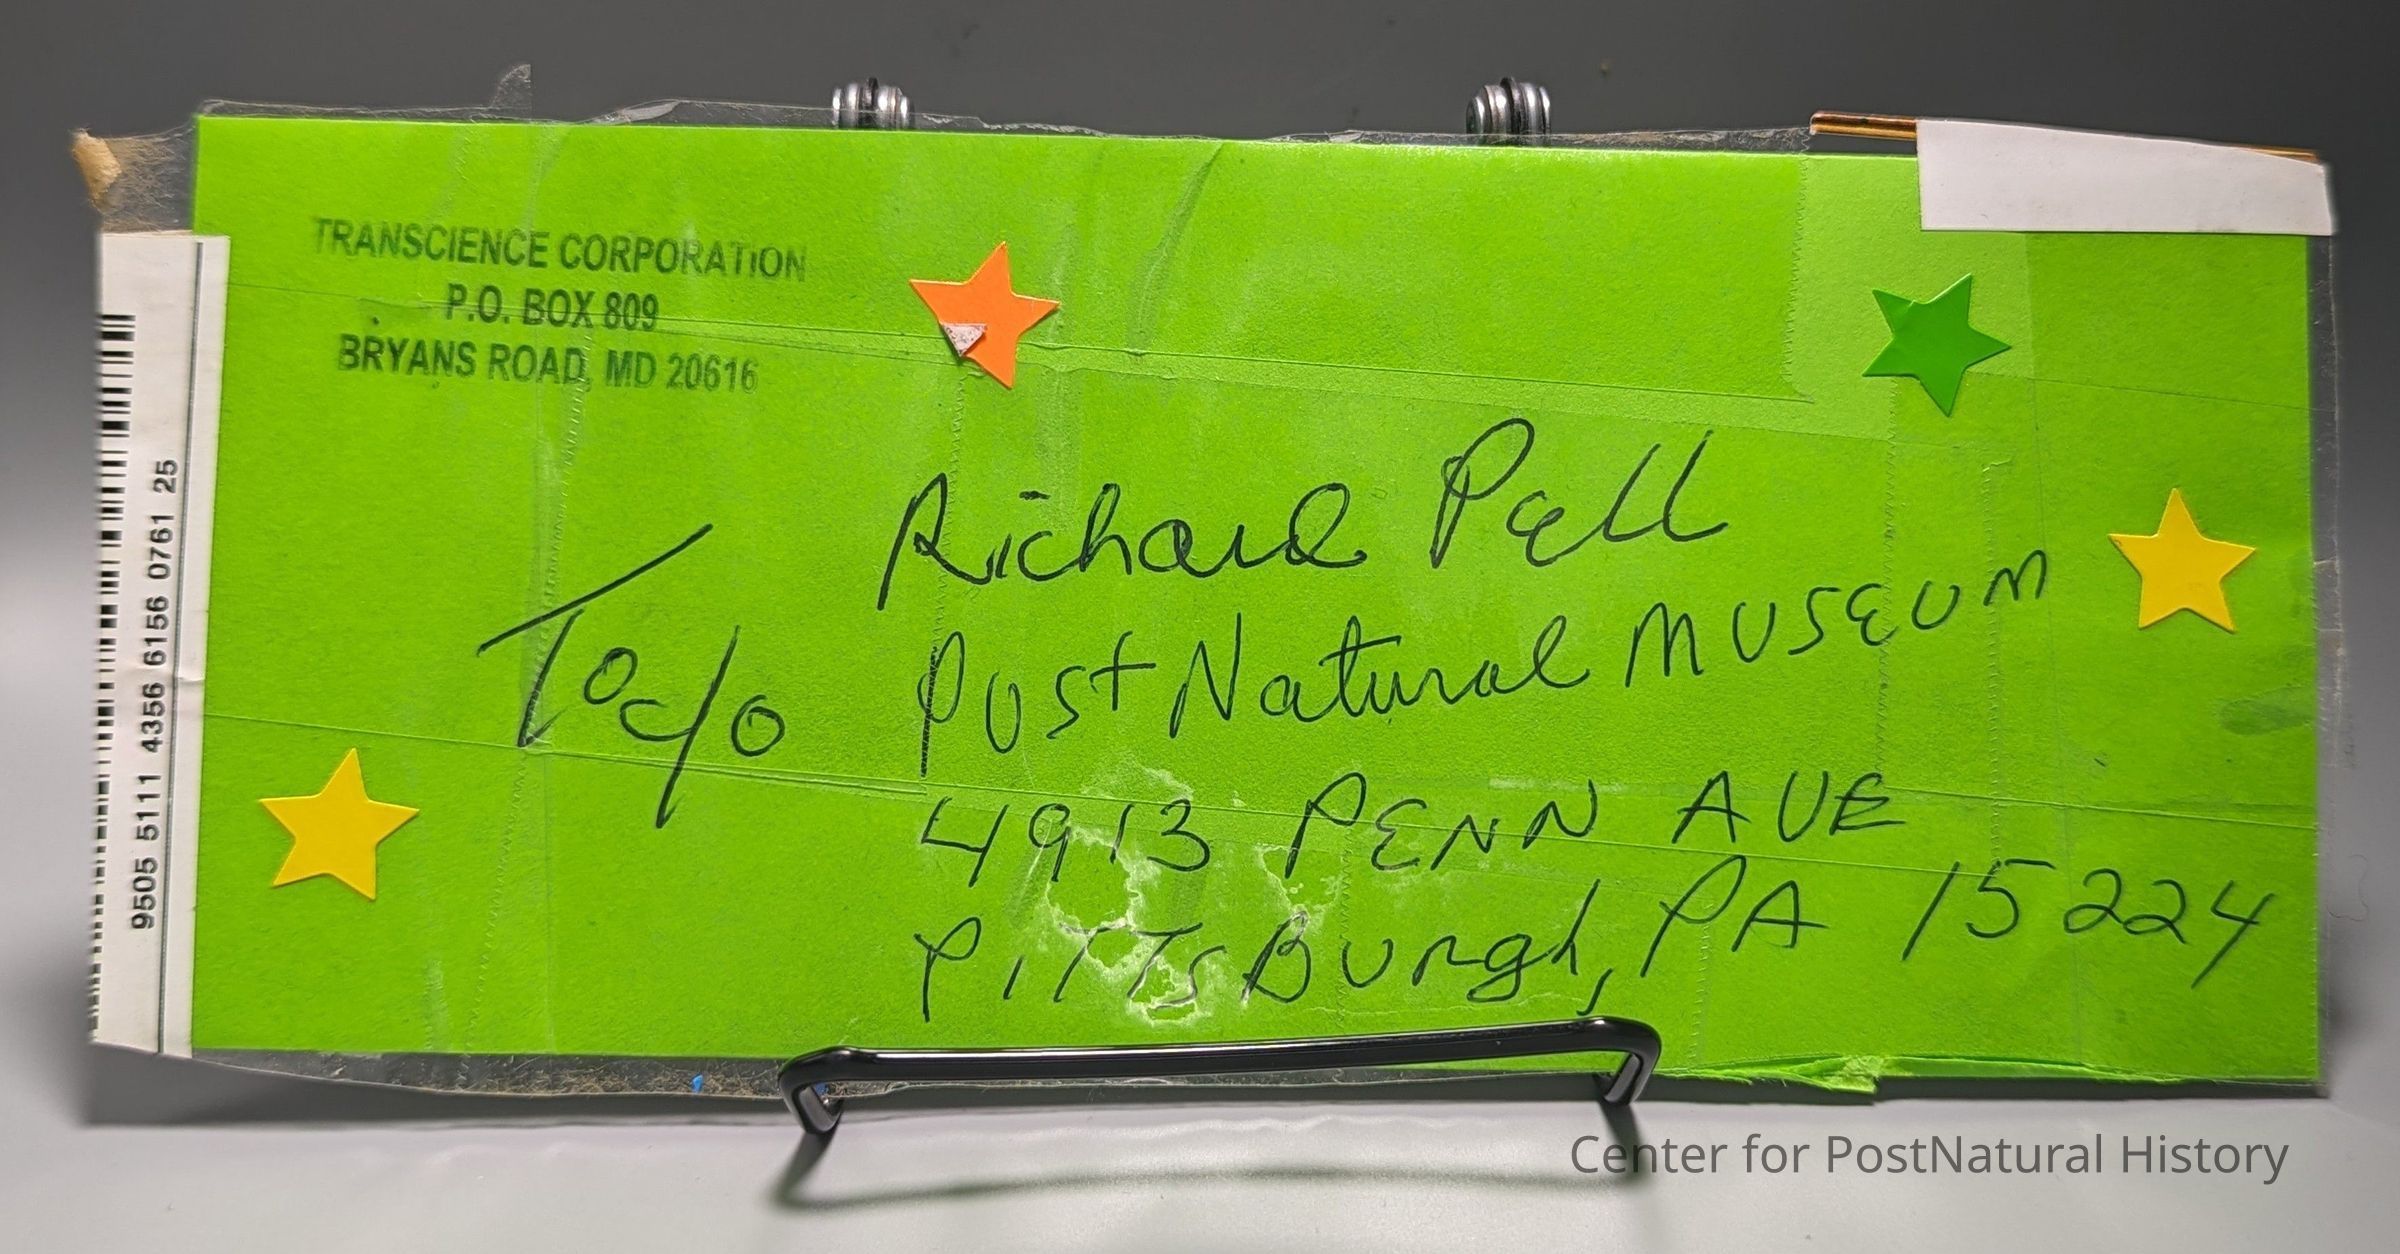 TRANSCIENCE CORPORATION
P.O. BOX 809
BRYANS ROAD, MD 20616
9505 5111 4356 6156 0761 25
To c/o
Richard Pell
Post Natural MUSEUM
4913 PENN AVE
PiTTsBurgh, PA 15224
Center for PostNatural History